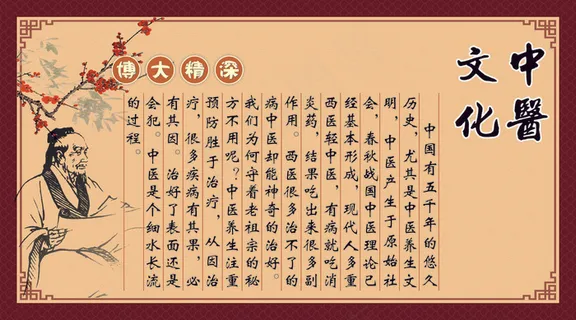 中醫
文化
博大精深
中国有五千年的悠久
历史，尤其是中医养生文
明，中医产生于原始社
会，春秋战国中医理论已
经基本形成，现代人多重
西医轻中医，有病就吃消
炎药，结果吃出来很多副
作用。西医很多治不了的
病中医却能神奇的治好。
我们为何守着老祖宗的秘
方不用呢？中医养生注重
预防胜于治疗，从因治
疗，很多疾病有其果，必
有其因。治好了表面还是
会犯。中医是个细水长流
的过程。